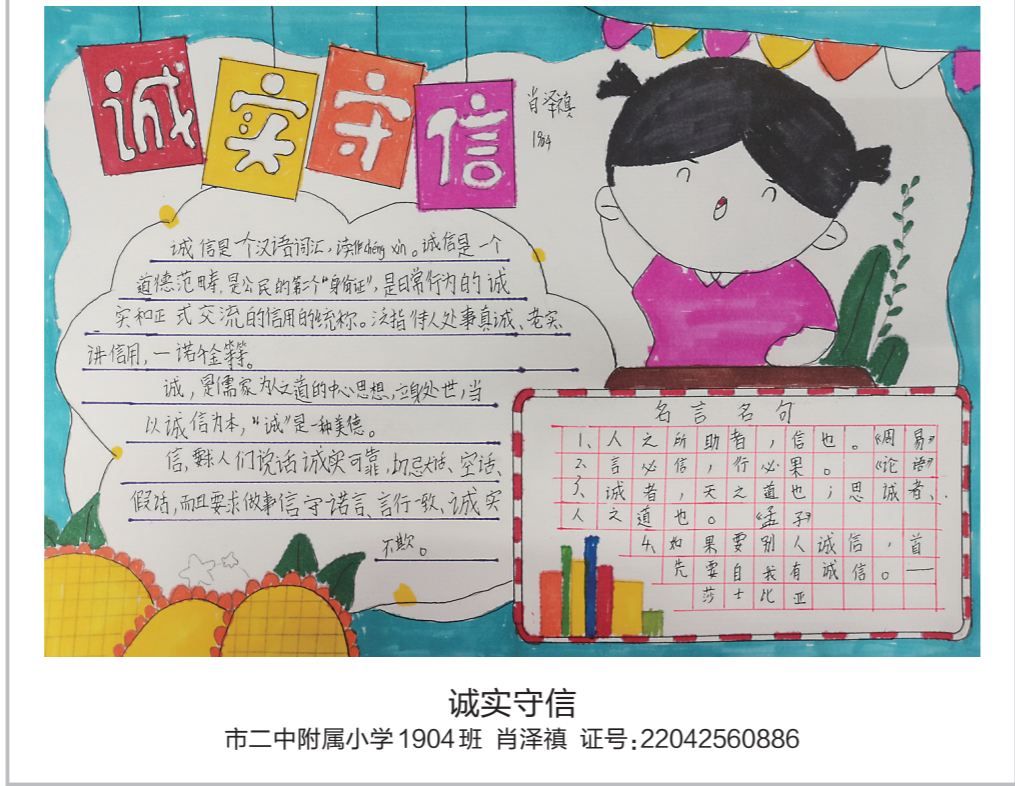 诚实守信
肖泽禛
1904
诚信是一个汉语词汇,读作chéng xìn。诚信是一个
道德范畴,是公民的第二个"身份证",是日常行为的诚
实和正式交流的信用的统称。泛指待人处事真诚、老实
讲信用,一诺千金等等。
诚,是儒家为人之道的中心思想,立身处世,当
以诚信为本,"诚"是一种美德。
信,要求人们说话诚实可靠,切忌大话、空话、
假话,而且要求做事信守诺言、言行一致、诚实
不欺。
名言名句
1、人之所助者,信也。《周易》
2、言必信,行必果。《论语》
3、诚者,天之道也;思诚者、
人之道也。《孟子》
4、如果要别人诚信,首
先要自我有诚信。——
莎士比亚
诚实守信
市二中附属小学1904班 肖泽禛 证号:22042560886